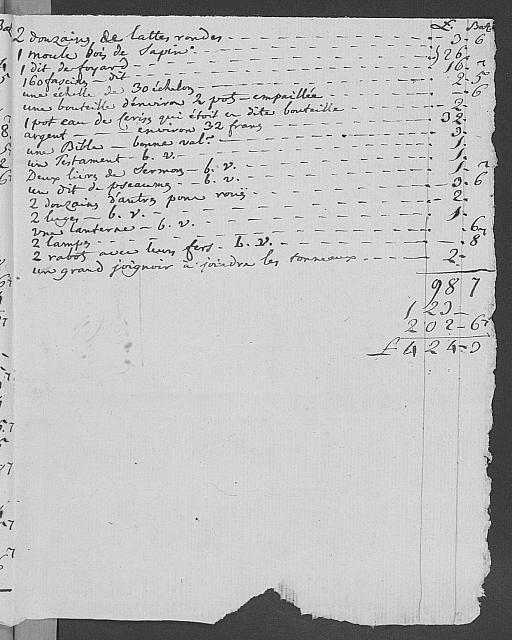 £ Batz
2 douzaines de lattes rondes 3-6
1 moule bois de Sapin
1 dit de foyard
160 fascines dit
une échelle de 30 échelons 6
une bouteille d'environ 2 pots empaillée 2
1 pot eau de cerises qui étoit en dite bouteille
argent environ 32 francs 32
une Bible - bonne val. 3
un Testament - b. v. 1
Deux livres de Sermons - b. v. 1
un dit de pseaumes - b. v. 1-7
2 douzains d'autres pour 3-6
2 luges - b. v. 2
une lanterne - b. v. 1
2 lampes
2 rabot avec leurs fers - b. v. 8
un grand joignoir à joindre les tonneaux 2-
98 7
123-
202-6
£ 424-3